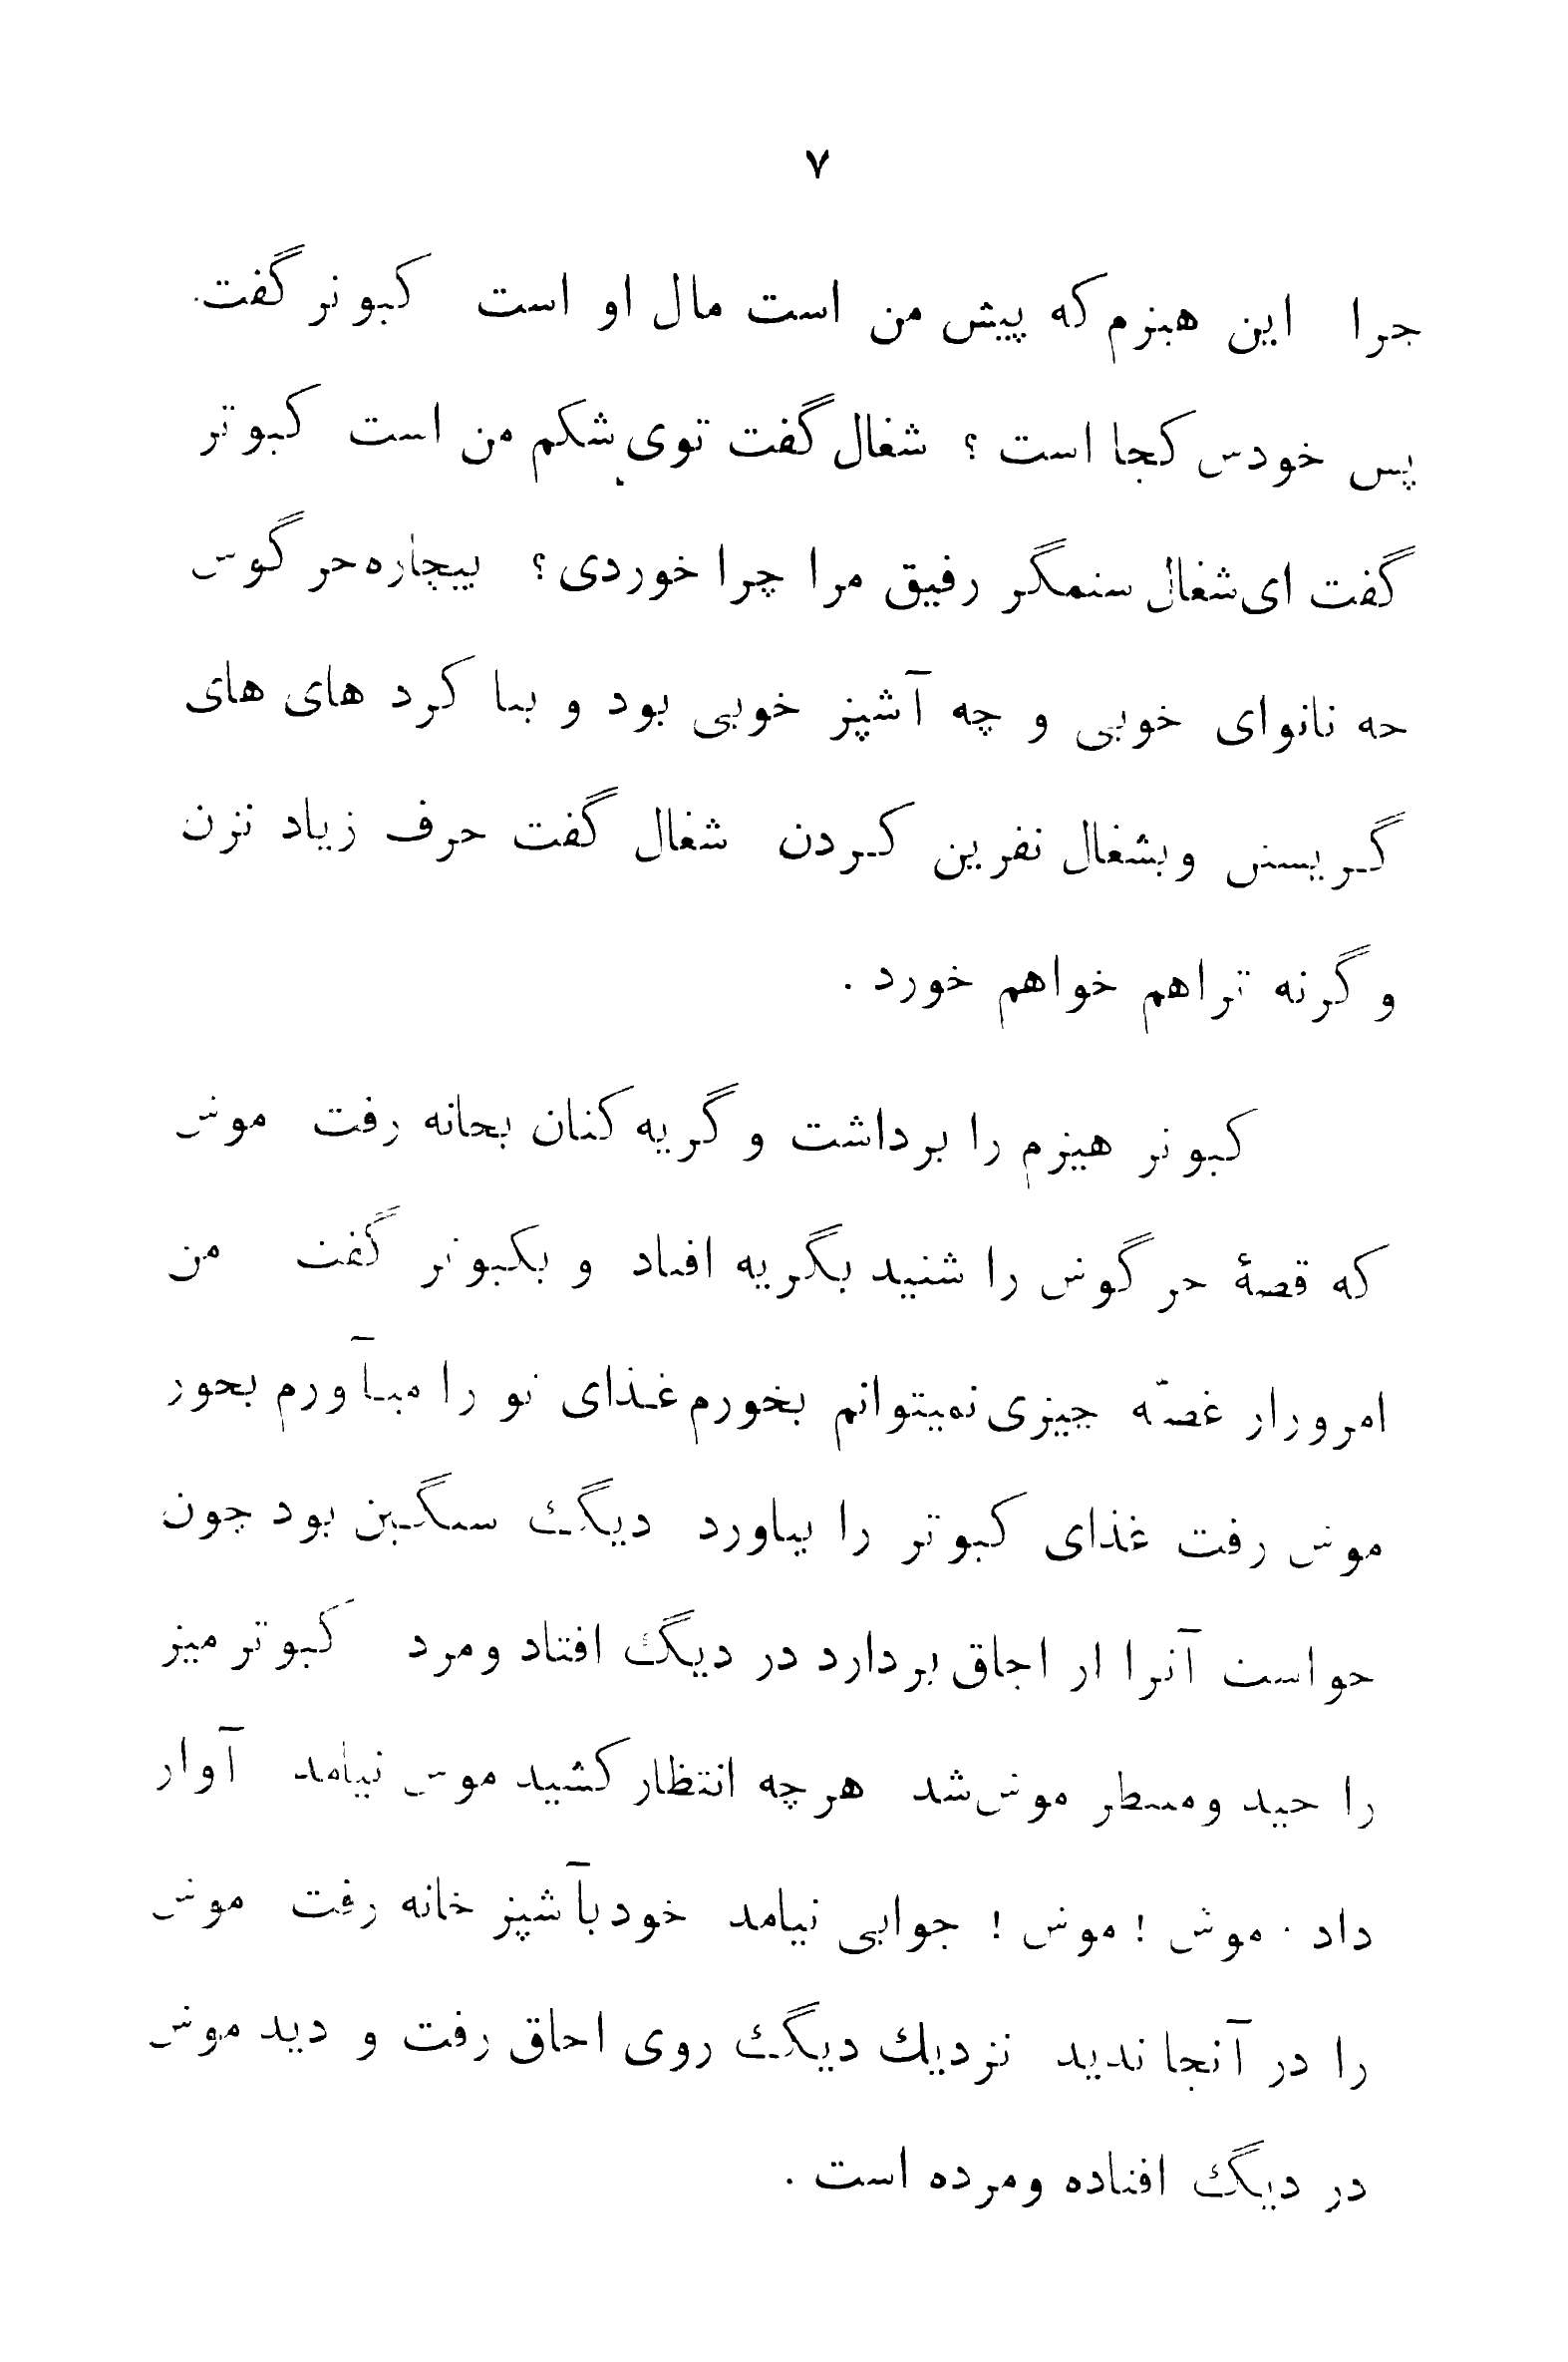 ۷
چرا این هیزم که پیش من است مال او است کبوتر گفت.
پس خودش کجا است ؟ شغال گفت توی شکم من است کبوتر
گفت ای شغال ستمگر رفیق مرا چرا خوردی ؟ بیچاره خرگوش
چه نانوای خوبی و چه آشپز خوبی بود و بنا کرد های های
گریستن و بشغال نفرین کردن شغال گفت حرف زیاد نزن
و گرنه تراهم خواهم خورد .
کبوتر هیزم را برداشت و گریه کنان بخانه رفت موش
که قصهٔ خرگوش را شنید بگریه افتاد و بکبوتر گفت من
امروز از غصّه چیزی نمیتوانم بخورم غذای تو را میآورم بخور
موش رفت غذای کبوتر را بیاورد دیگ سنگین بود چون
خواست آنرا از اجاق بردارد در دیگ افتاد و مرد کبوتر میز
را چید و منتظر موش شد هر چه انتظار کشید موش نیامد آواز
داد . موش ! موش ! جوابی نیامد خود بآشپز خانه رفت موش
را در آنجا ندید نزدیك دیگ روی اجاق رفت و دید موش
در دیگ افتاده و مرده است .